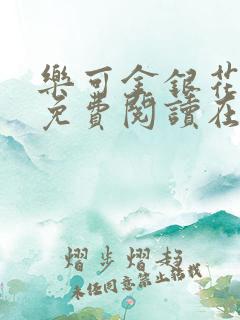 樂可金銀花
免費閱讀在
熠步熠趨
未經同意禁止轉載